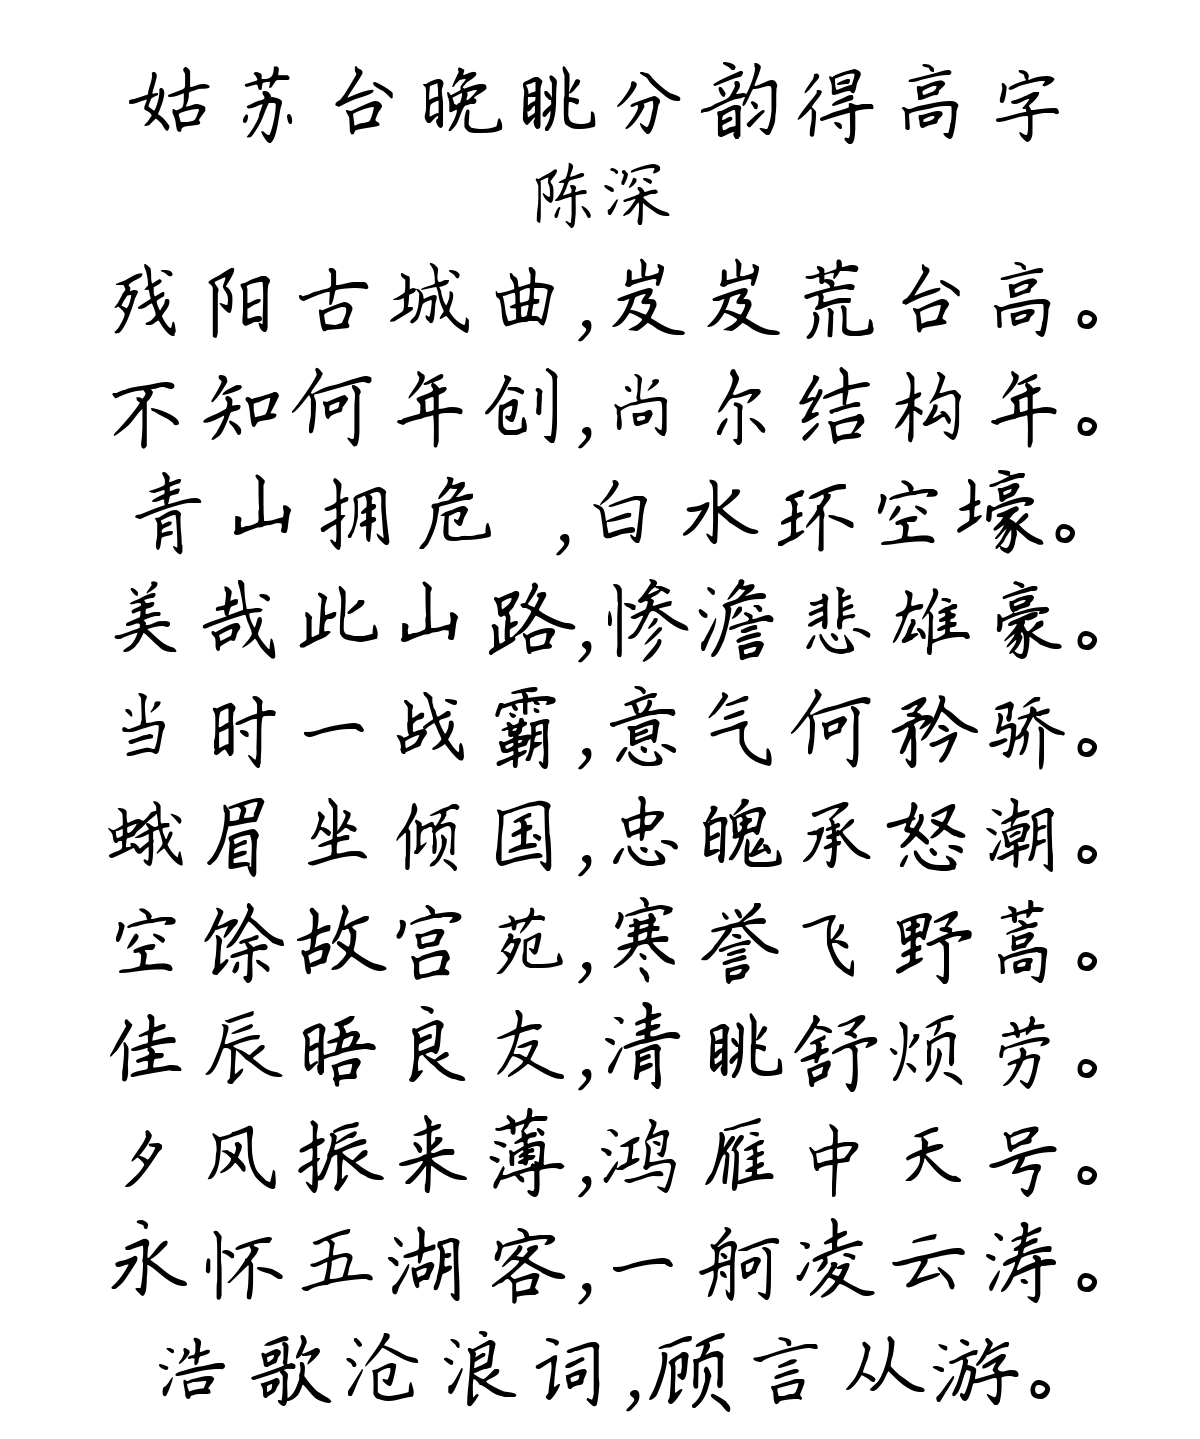 姑苏台晚眺分韵得高字
陈深
残阳古城曲,岌岌荒台高。
不知何年创,尚尔结构年。
青山拥危 ,白水环空壕。
美哉此山路,惨澹悲雄豪。
当时一战霸,意气何矜骄。
蛾眉坐倾国,忠魄承怒潮。
空馀故宫苑,寒誉飞野蒿。
佳辰晤良友,清眺舒烦劳。
夕风振来薄,鸿雁中天号。
永怀五湖客,一舸凌云涛。
浩歌沧浪词,顾言从游。